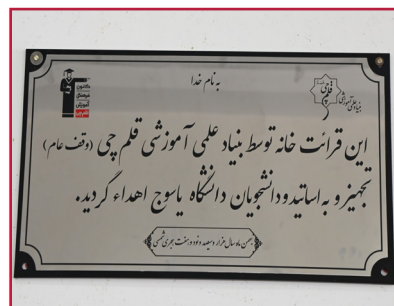 به نام خدا
کانون
فرهنگی
آموزش
قلم چی
بنیاد علمی آموزشی
این قرائت خانه توسط بنیاد علمی آموزشی قلم چی (وقف عام)
تجهیز و به اساتید و دانشجویان دانشگاه یاسوج اهداء گردید.
بهمن ماه سال هزار و سیصد و نود و هفت هجری شمسی